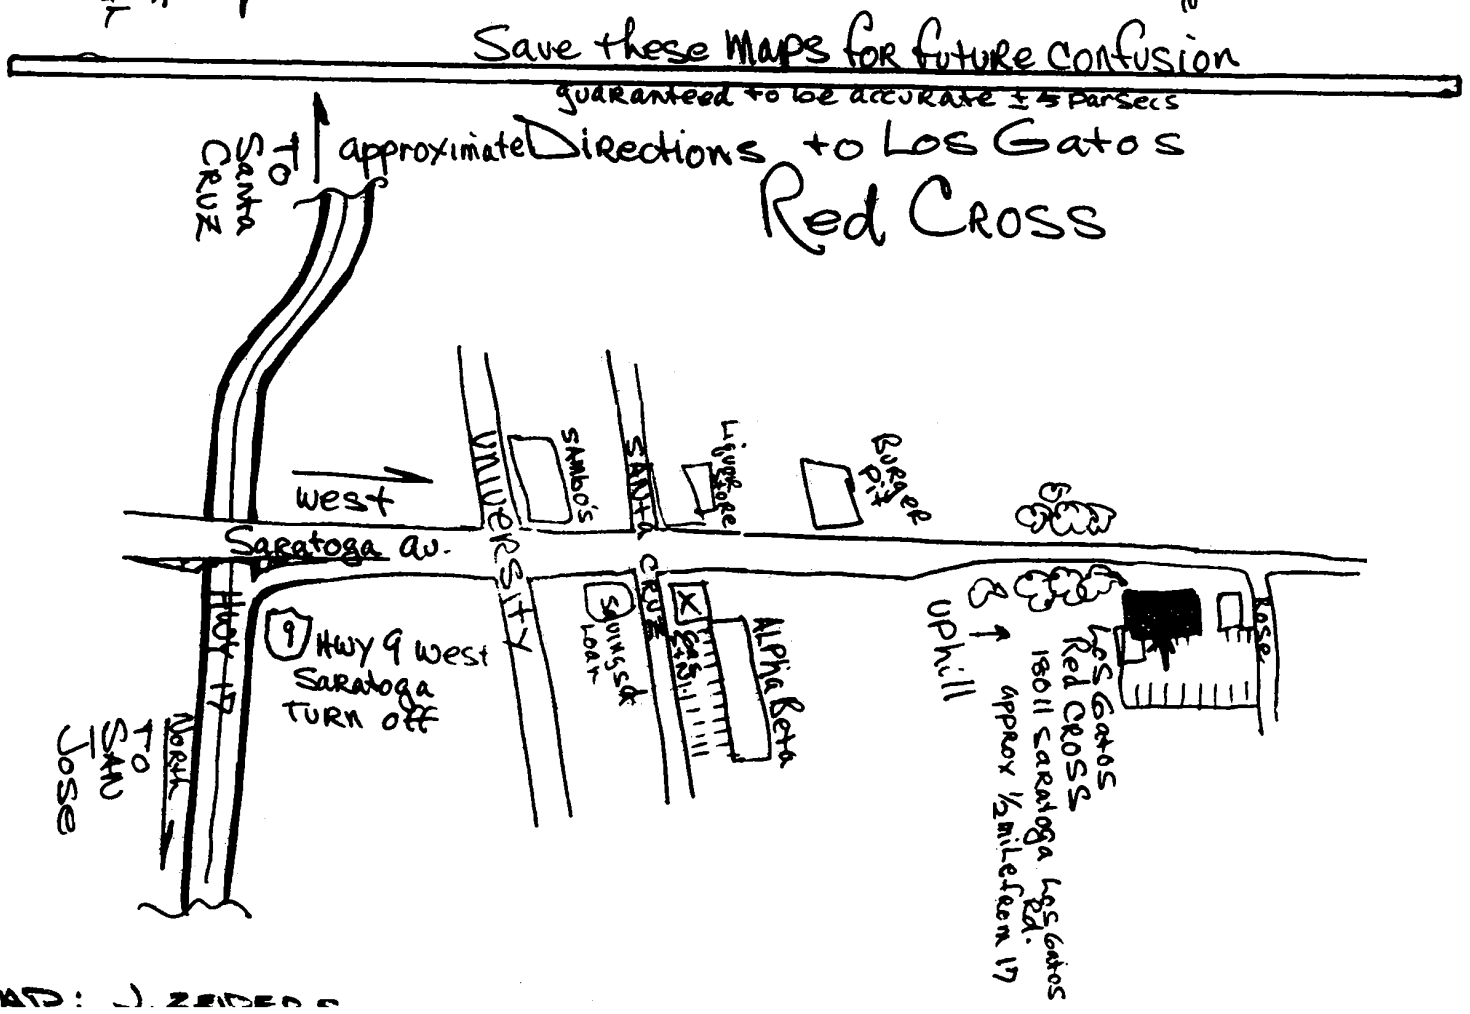 Save these Maps for future confusion
guaranteed to be accurate ± 5 parsecs
approximate Directions to Los Gatos
Red Cross
TO
Santa
CRUZ
West
Saratoga av.
HWY 17
9
HWY 9 West
Saratoga
TURN off
North
TO
SAN
Jose
UNIVERSITY
SAMbo's
SANTA CRUZ
Liquor
store
BURGER
Pit
Savings &
Loan
X
Gas
Stn.
ALPha Beta
UPhill
Los Gatos
Red CROSS
18011 Saratoga Los Gatos
Rd.
approx 1/2 mile from 17
Rose
MAP: J. ZEIDERS